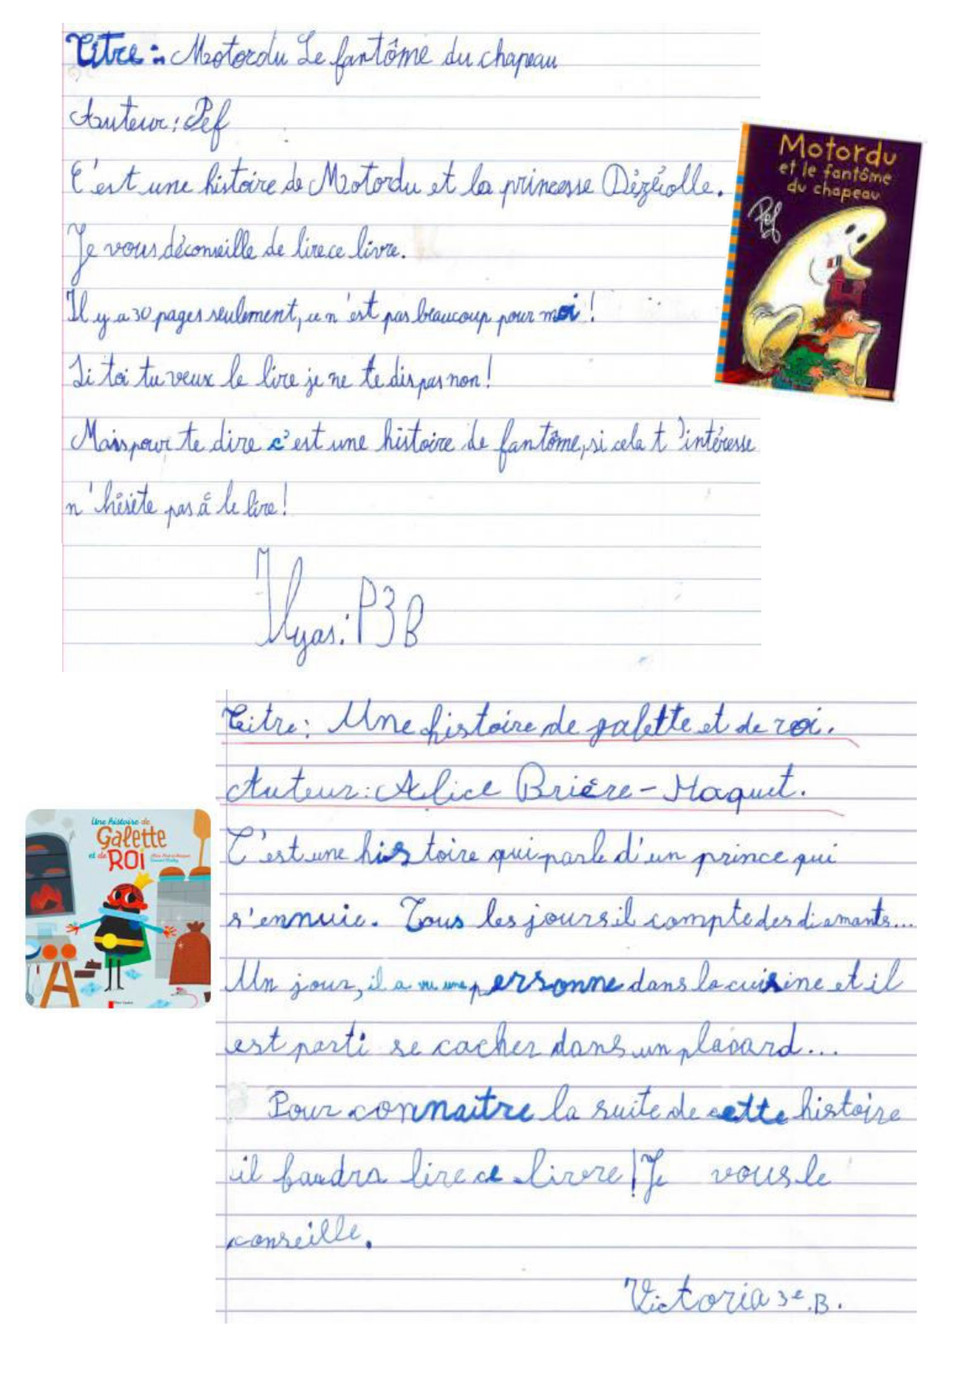 Titre : Motordu Le fantôme du chapeau
Auteur : Pef
C'est une histoire de Motordu et la princesse Dézécolle.
Je vous déconseille de lire ce livre.
Il y a 30 pages seulement, ce n'est pas beaucoup pour moi !
Si toi tu veux le lire je ne te dis pas non !
Mais pour te dire c'est une histoire de fantôme, si cela t'intéresse
n'hésite pas à le lire !
Ilyas : P3B
Motordu
et le fantôme
du chapeau
Pef
Titre : Une histoire de galette et de roi.
Auteur : Alice Brière-Haquet.
C'est une histoire qui parle d'un prince qui
s'ennuie. Tous les jours il compte des diamants...
Un jour, il a vu une personne dans la cuisine et il
est parti se cacher dans un placard...
Pour connaitre la suite de cette histoire
il faudra lire ce livre ! Je vous le
conseille.
Victoria 3e B.
Une histoire de
Galette
et de ROI